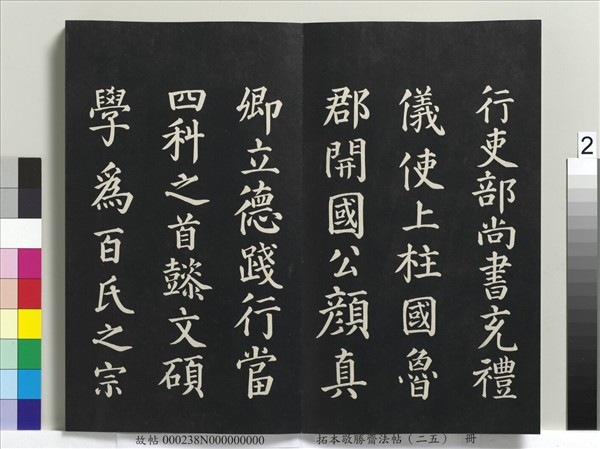 行吏部尚書充禮
儀使上柱國魯
郡開國公顏真
卿立德踐行當
四科之首懿文碩
學為百氏之宗
故帖 000238N000000000 拓本敬勝齋法帖（二五） 冊
2